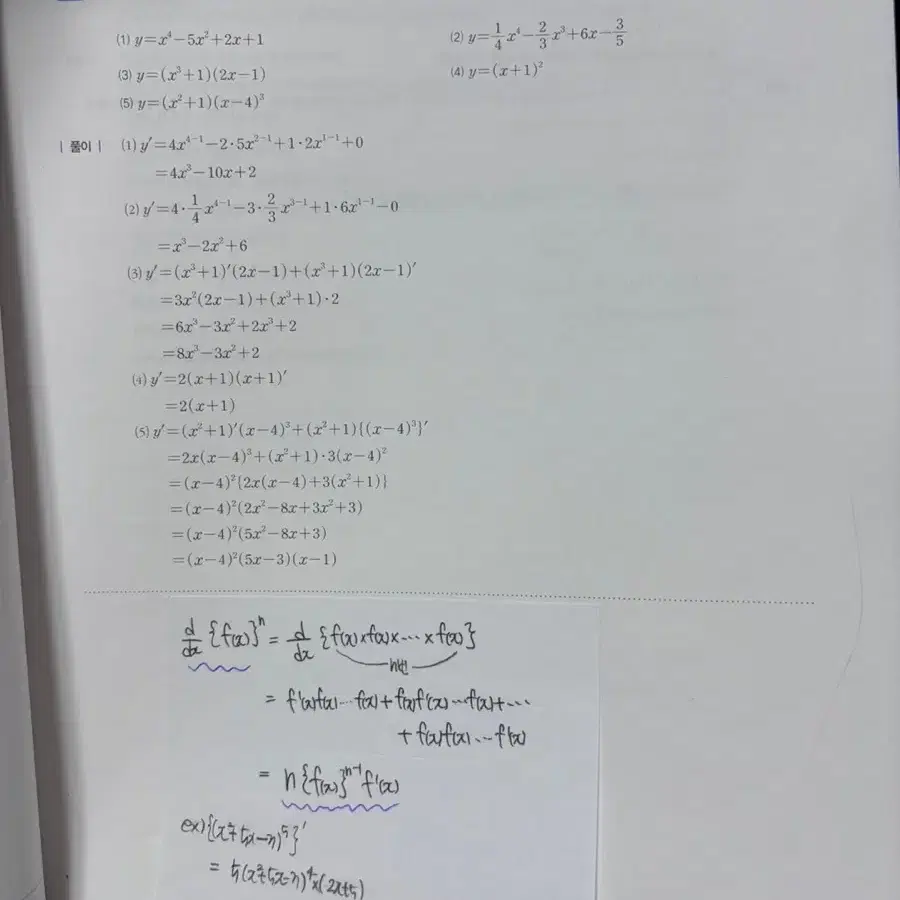 (1) y=x⁴-5x²+2x+1
(2) y=1/4x⁴-2/3x³+6x-3/5
(3) y=(x³+1)(2x-1)
(4) y=(x+1)²
(5) y=(x²+1)(x-4)³
| 풀이 | (1) y′=4x⁴⁻¹-2·5x²⁻¹+1·2x¹⁻¹+0
=4x³-10x+2
(2) y′=4·1/4x⁴⁻¹-3·2/3x³⁻¹+1·6x¹⁻¹-0
=x³-2x²+6
(3) y′=(x³+1)′(2x-1)+(x³+1)(2x-1)′
=3x²(2x-1)+(x³+1)·2
=6x³-3x²+2x³+2
=8x³-3x²+2
(4) y′=2(x+1)(x+1)′
=2(x+1)
(5) y′=(x²+1)′(x-4)³+(x²+1){(x-4)³}′
=2x(x-4)³+(x²+1)·3(x-4)²
=(x-4)²{2x(x-4)+3(x²+1)}
=(x-4)²(2x²-8x+3x²+3)
=(x-4)²(5x²-8x+3)
=(x-4)²(5x-3)(x-1)
d/dx {f(x)}ⁿ = d/dx {f(x)×f(x)×⋯×f(x)}
n번
= f′(x)f(x)⋯f(x)+f(x)f′(x)⋯f(x)+⋯
+f(x)f(x)⋯f′(x)
= n{f(x)}ⁿ⁻¹f′(x)
ex){(x²+5x-3)⁵}′
= 5(x²+5x-3)⁴×(2x+5)